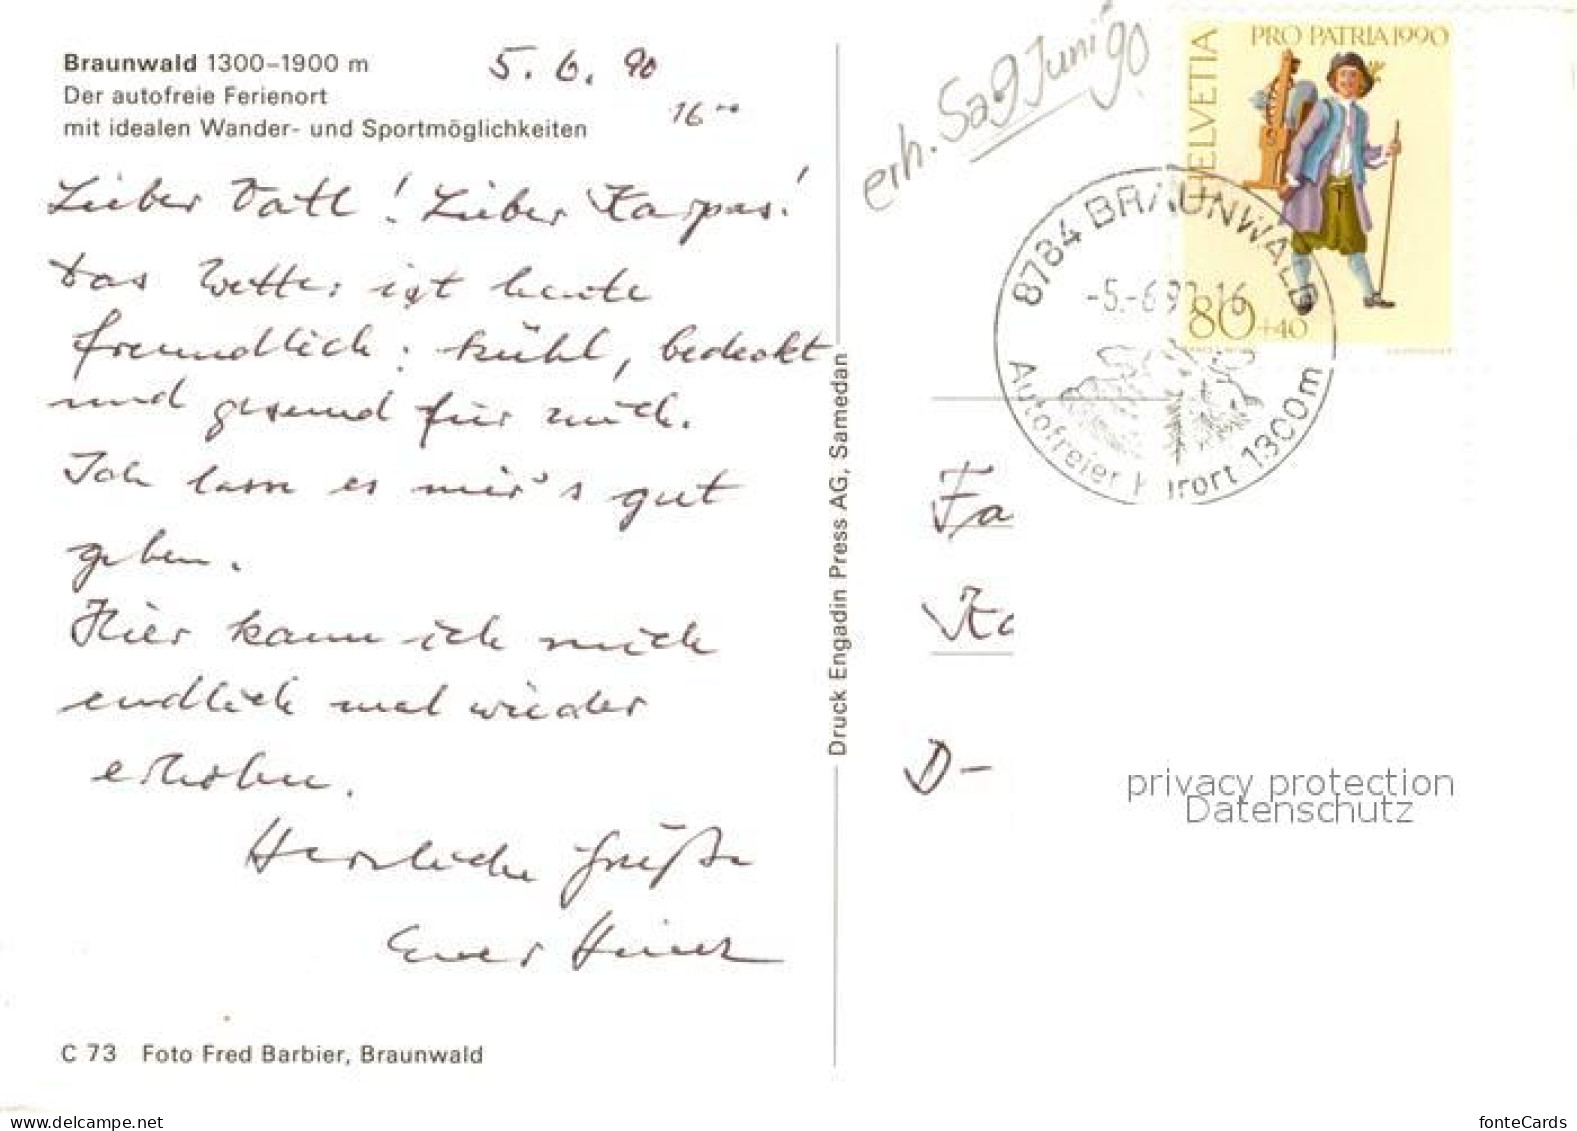 Braunwald 1300–1900 m
Der autofreie Ferienort
mit idealen Wander- und Sportmöglichkeiten
5. 6. 90
16⁰⁰
Lieber Vatl! Lieber Kaspar!
Das Wetter ist heute
freundlich: kühl, bedeckt
und gesund für mich.
Ich lass es mir's gut
geben.
Hier kann ich mich
endlich mal wieder
erholen.
Herzliche Grüße
Euer Heinz
C 73 Foto Fred Barbier, Braunwald
Druck Engadin Press AG, Samedan
erh. Sa 9 Juni '90
PRO PATRIA 1990
HELVETIA
80+40
8784 BRAUNWALD
-5.-6.90-16
Autofreier Kurort 1300m
Fa
Ka
D-
privacy protection
Datenschutz
www.delcampe.net
fonteCards